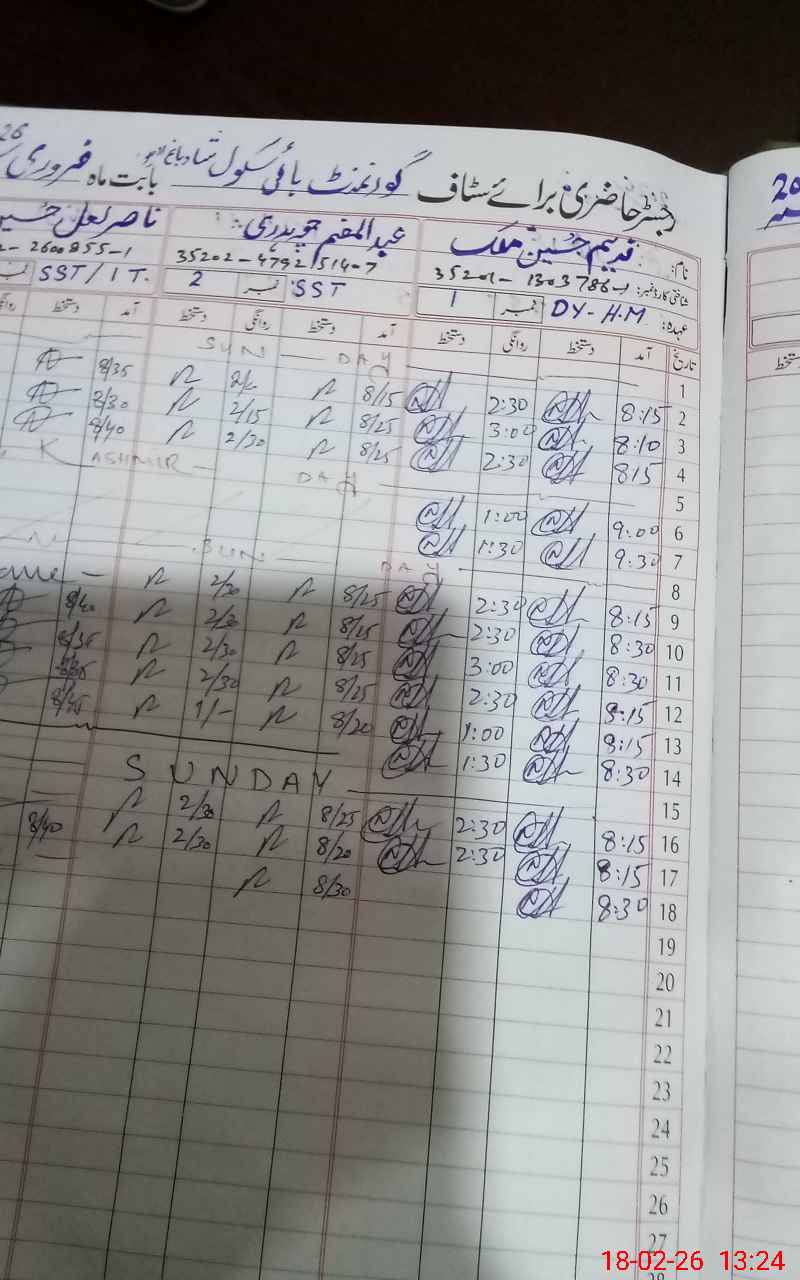 26
رجسٹر حاضری برائے سٹاف گورنمنٹ ہائی سکول شاد باغ لاہور بابت ماہ فروری
نام: ندیم حسین ملک عبدالمقیم چوہدری ناصر لعل حسین
شناختی کارڈ نمبر: 35201-1303786-1 35202-4792514-7 2-2600855-1
عہدہ: DY-H.M نمبر 1 SST نمبر 2 SST/IT.
تاریخ آمد دستخط روانگی دستخط آمد دستخط روانگی دستخط آمد دستخط
1 SUN DAY
2 8:15 2:30 8/15 8/35
3 8:10 3:00 8/25 2/15 8/30
4 8:15 2:30 8/25 2/30 8/40
5 KASHMIR - DAY
6 9:00 1:00
7 9:30 1:30
8 SUN - DAY
9 8:15 2:30 8/25 2/30 8/40
10 8:30 2:30 8/25 2/30 8/35
11 8:30 3:00 8/25 2/30
12 8:15 2:30 8/25 2/30 8/45
13 8:15 1:00 8/20 1/-
14 8:30 1:30
15 SUNDAY
16 8:15 2:30 8/25 2/30 8/40
17 8:15 2:30 8/20 2/30
18 8:30 8/30
19
20
21
22
23
24
25
26
27
28
دستخط
18-02-26 13:24